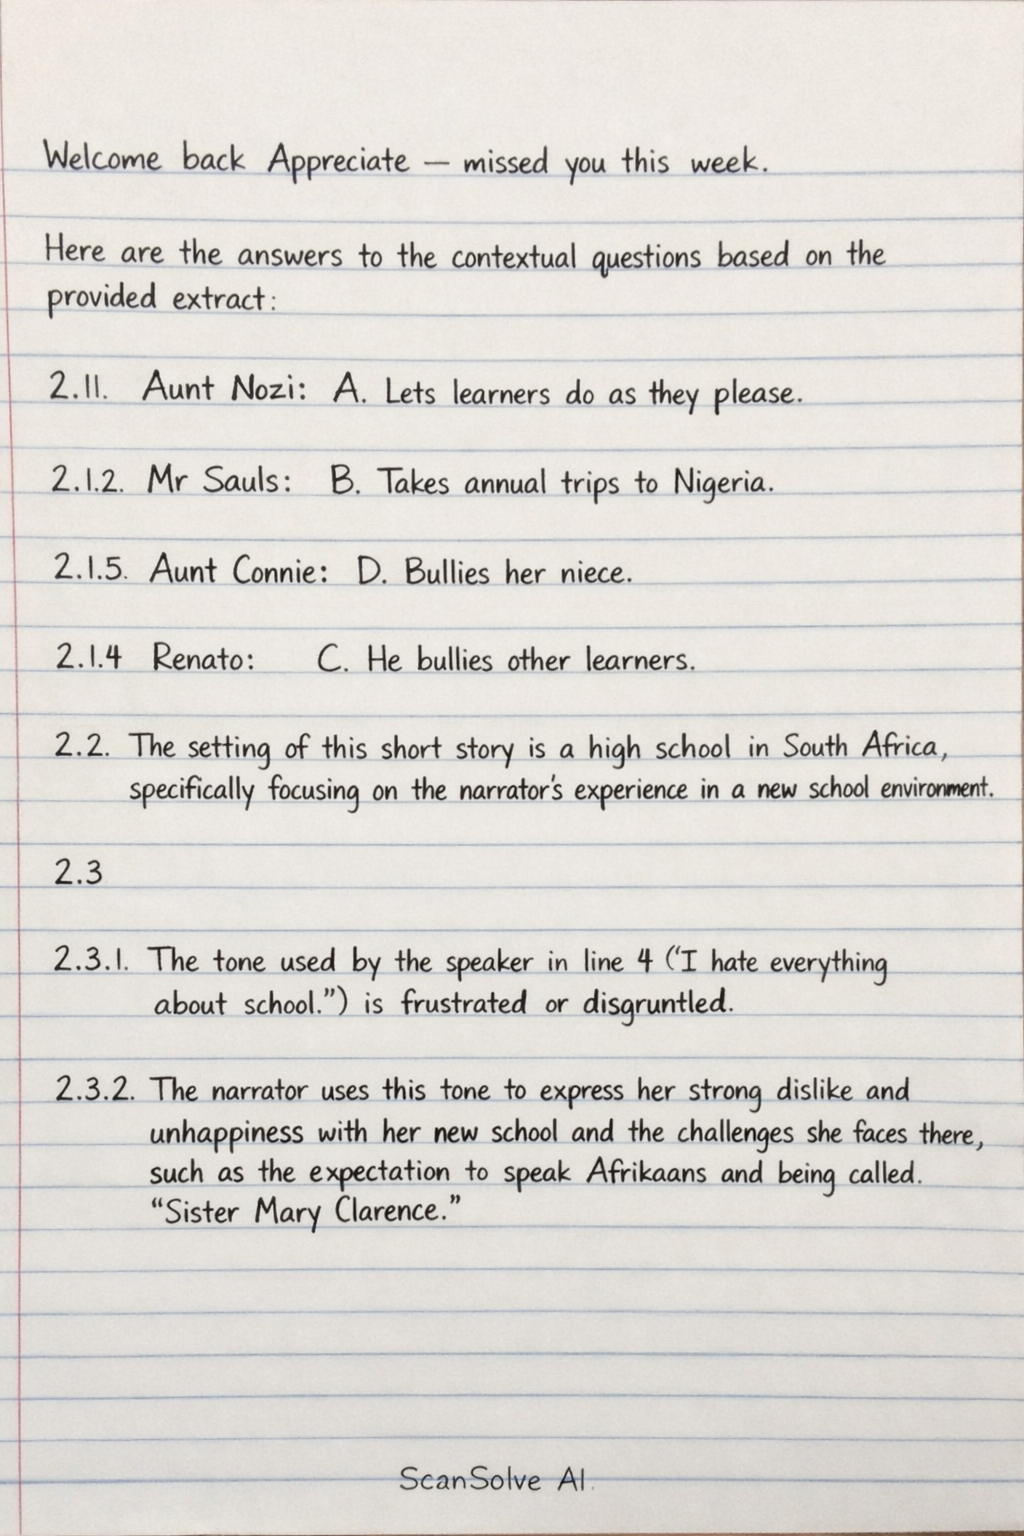 Welcome back Appreciate — missed you this week.
Here are the answers to the contextual questions based on the
provided extract:
2.11. Aunt Nozi: A. Lets learners do as they please.
2.1.2. Mr Sauls: B. Takes annual trips to Nigeria.
2.1.5. Aunt Connie: D. Bullies her niece.
2.1.4 Renato: C. He bullies other learners.
2.2. The setting of this short story is a high school in South Africa,
specifically focusing on the narrator's experience in a new school environment.
2.3
2.3.1. The tone used by the speaker in line 4 (“I hate everything
about school.”) is frustrated or disgruntled.
2.3.2. The narrator uses this tone to express her strong dislike and
unhappiness with her new school and the challenges she faces there,
such as the expectation to speak Afrikaans and being called.
“Sister Mary Clarence.”
ScanSolve AI.